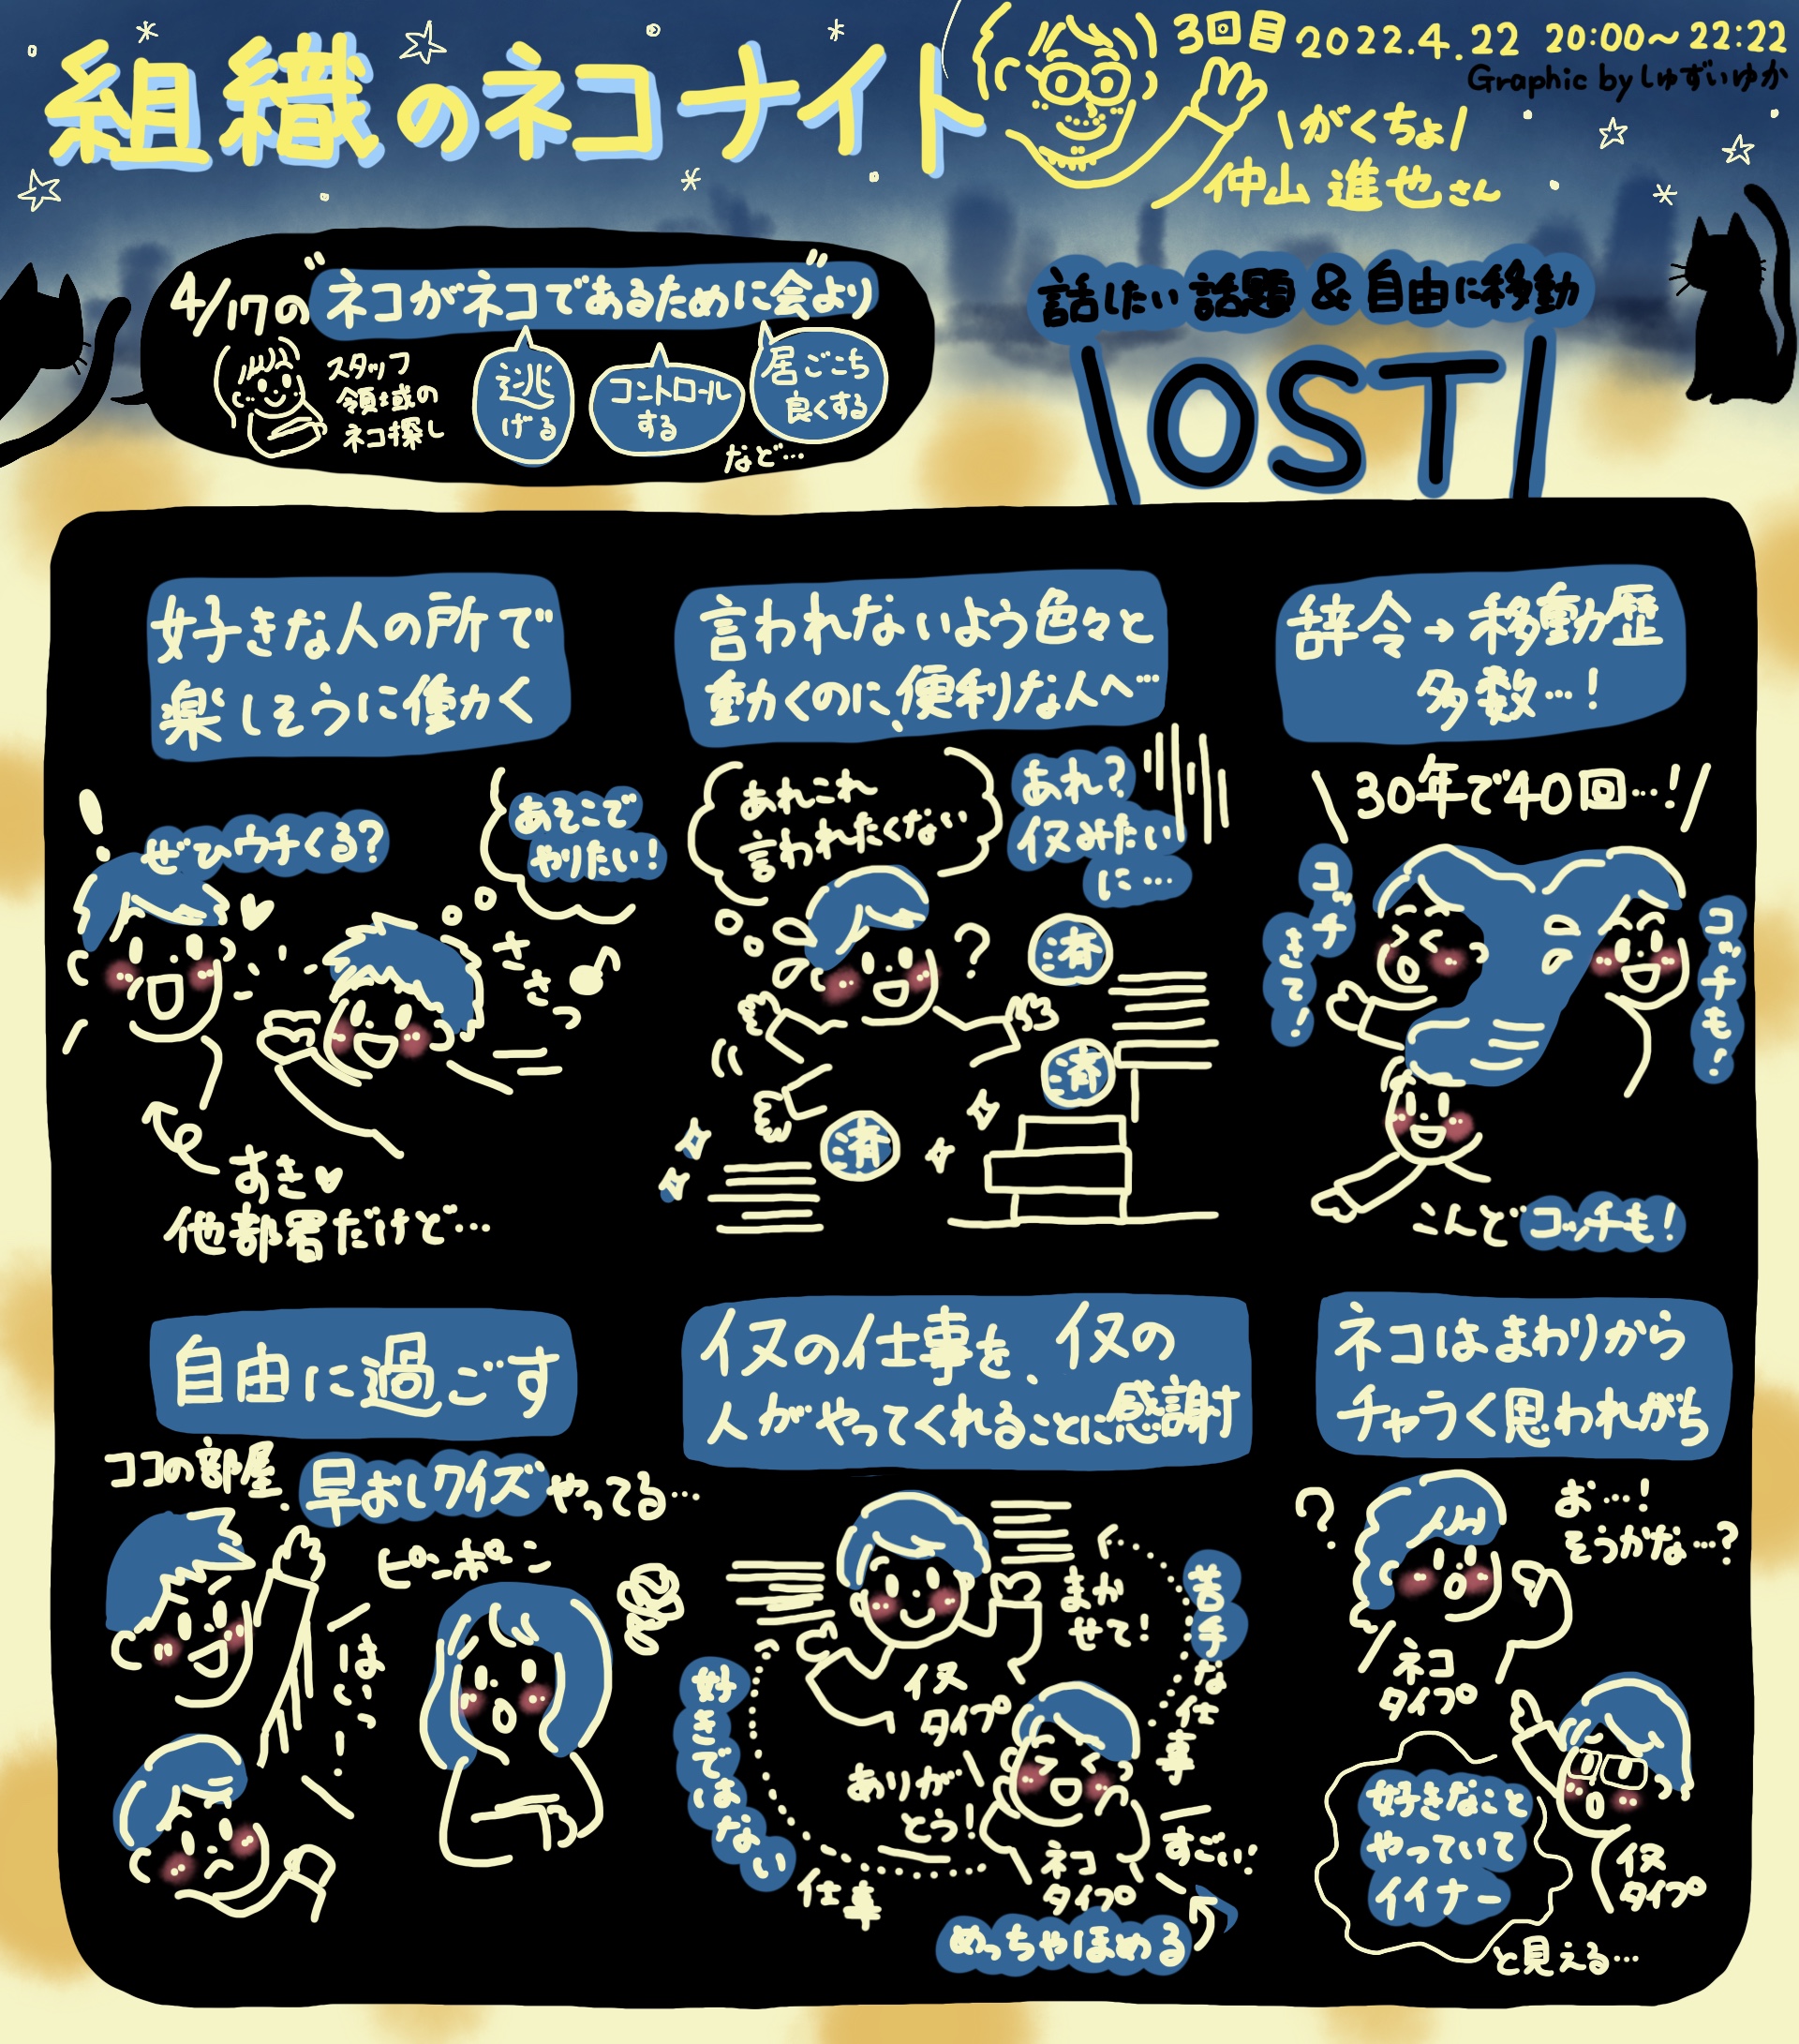 組織のネコナイト
3回目 2022.4.22 20:00〜22:22
Graphic by しゅずいゆか
\がくちょ/
仲山 進也さん
4/17の"ネコがネコであるために会"より
スタッフ
領域の
ネコ探し
逃
げる
コントロール
する
居ごこち
良くする
など…
話したい話題&自由に移動
\OST/
好きな人の所で
楽しそうに働かく
!
ぜひウチくる?
あそこで
やりたい!
ささっ♪
すき♥
他部署だけど…
言われないよう色々と
動かくのに、便利な人へ…
あれこれ
言われたくない
あれ?
イヌみたい
に…
?
済
済
済
辞令→移動歴
多数…!
\30年で40回…!/
コッチ
きて!
コッチも!
こんどコッチも!
自由に過ごす
ココの部屋、早おしクイズやってる…
ピンポーン
はいっ!
イヌの仕事を、イヌの
人がやってくれることに感謝
まか
せて!
苦手な仕事
イヌ
タイプ
好きではない
仕事
ありが
とう!
ネコ
タイプ
すごい!
めっちゃほめる
ネコはまわりから
チャラく思われがち
?
お…!
そうかな…?
ネコ
タイプ
好きなこと
やっていて
イイナー
と見える…
イヌ
タイプ